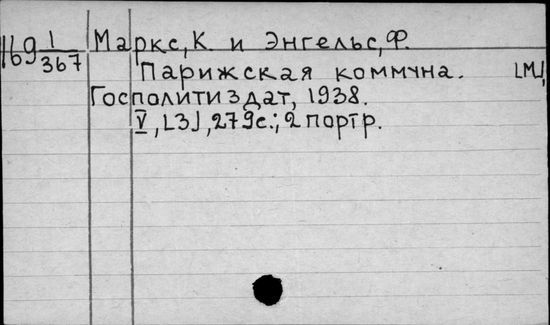 169 1/367 Маркс, К. и Энгельс, Ф.
Парижская коммуна. [М.],
Госполитиздат, 1938.
V, [3], 279с.; 2 портр.